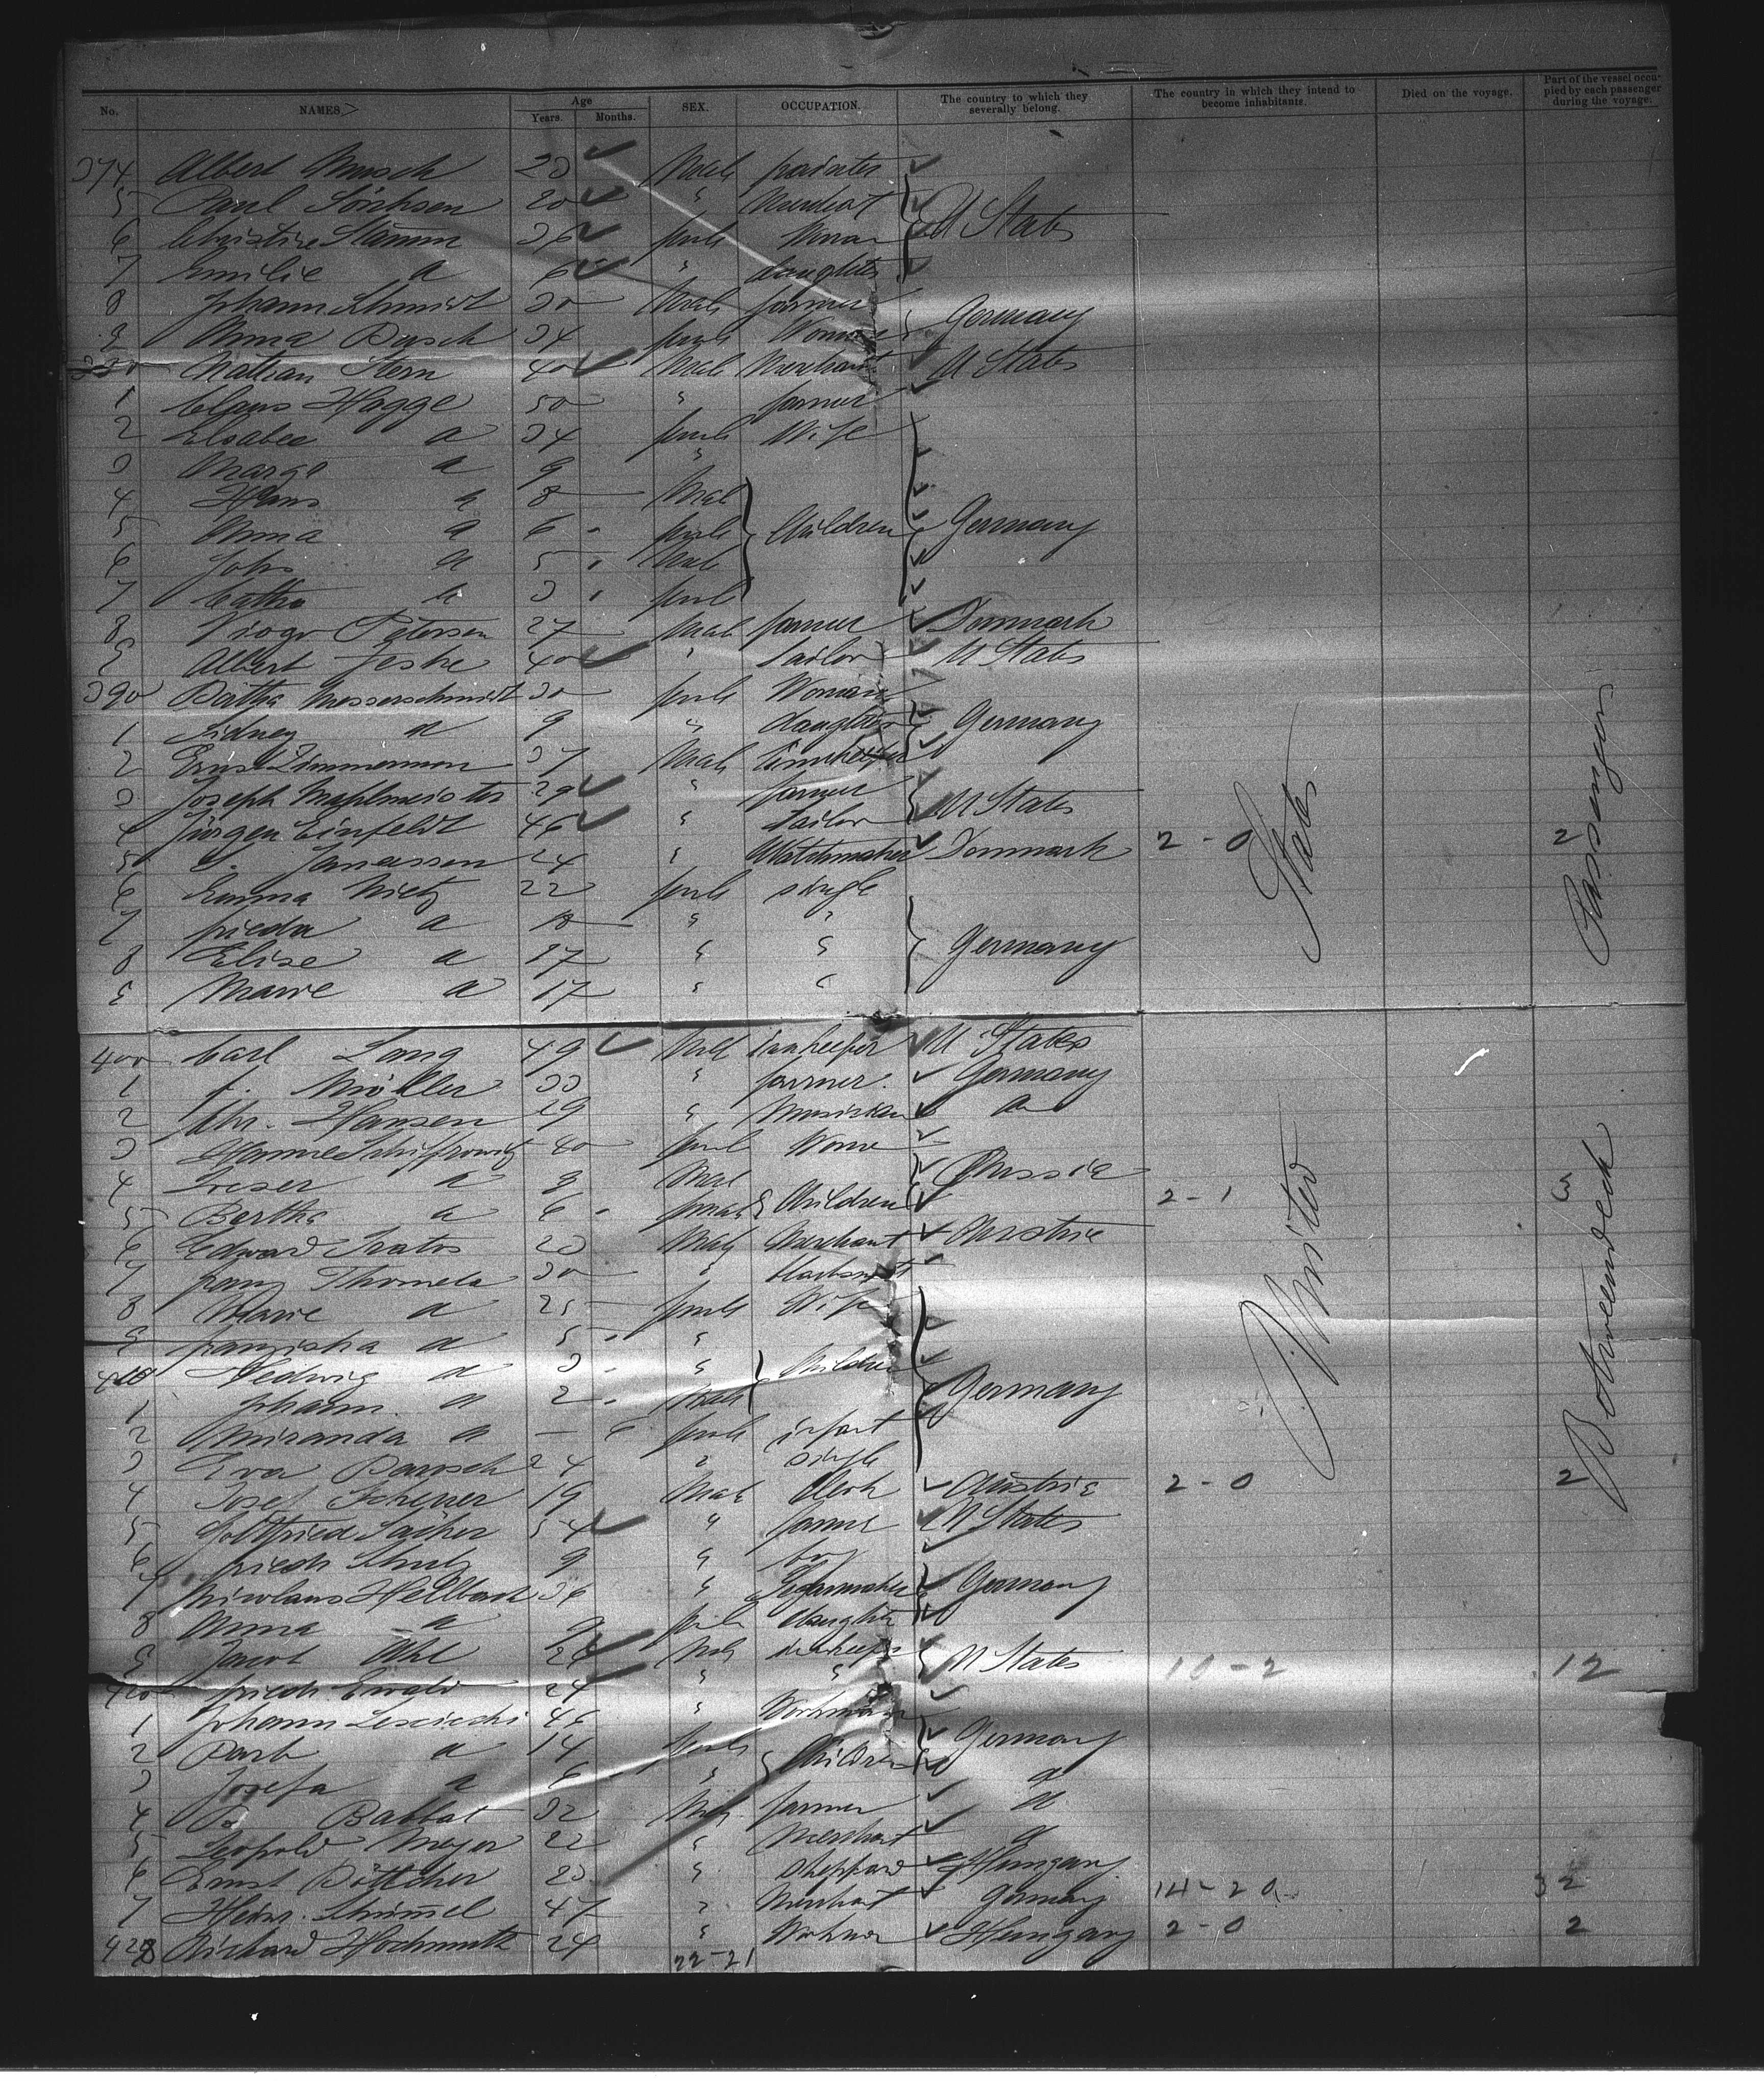 No. NAMES Age Years. Months. SEX. OCCUPATION. The country to which they severally belong. The country in which they intend to become inhabitants. Died on the voyage. Part of the vessel occupied by each passenger during the voyage.
374 Albert 23 Male painter
5 Paul Sörchsen 20 " Merchant U States
6 Christine Stamm 36 female Woman
7 Emilie a 6 " daughter
8 Johann Schmidt 30 Male farmer Germany
9 Anna Busch 34 female Woman
380 Nathan Stern 40 Male Merchant U States
1 Claus Hagge 50 " farmer
2 Elsabea a 34 female Wife
3 Marga a 9 "
4 Hans a 8 Male
5 Anna a 6 female Children Germany
6 John a 5 Male
7 Catha a 3 female
8 Viogo Petersen 27 Male farmer Denmark
9 Albert Jeske 40 " Tailor U States
390 Bertha Messerschmidt 30 female Woman
1 Sidney a 9 " daughter Germany
2 Ernst Zimmermann 37 Male
3 Joseph 29 " farmer U States
4 Jürgen Einfeldt 46 " Tailor
5 Janassen 24 " Watchmaker Denmark 2 - 0 2
6 Emma 22 female single
7 frieda a 18 " "
8 Elise a 17 " " Germany
9 Marie a 17 " "
400 Carl Lang 49 Male innkeeper U States
1 J. Möller 33 " farmer. Germany
2 Chr. Hansen 29 " Musician a
3 Hanne 40 female Woman
4 Leser a 9 Male Russia
5 Bertha a 6 female Children 2 - 1 3
6 Edward 23 Male Merchant Austria
7 franz Thomela 30 " blacksmith
8 Marie a 25 female Wife
9 franziska a 5 "
410 Hedwig a 3 " Children
1 Johann a 2 Male Germany
2 Miranda a — 6 female infant
3 Eva 24 " single
4 Josef 19 Male Clerk Austria 2 - 0 2
5 Gottfried 54 " farmer U States
6 friedr Schulz 9 " boy
7 Nicolaus Hellbach 36 " Germany
8 Anna a 9 female daughter
9 Jacob 24 Male U States 10 - 2 12
420 friedr Ewald 24 " "
1 Johann 46 " Workman
2 Barb a 14 female Children Germany
3 Josefa a 6 " a
4 Babbat 32 Male farmer a
5 Leopold Meyer 22 " Merchant a
6 Ernst Böttcher 23 " Hungary
7 Heinr. Schimmel 47 " Merchant Germany 32
428 Richard Hochmuth 24 " Workman Hungary 2 - 0 2
22-21
United States
Betweendeck Passengers